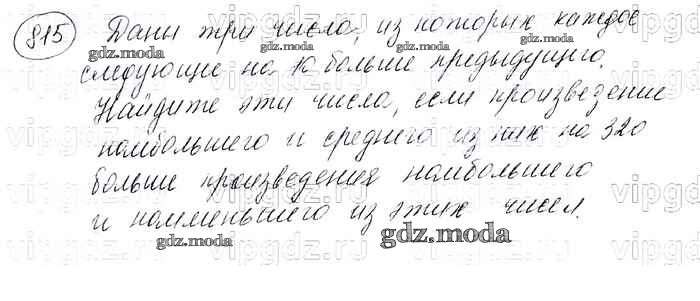 815 Даны три числа, из которых каждое
следующие на 10 больше предыдущего.
Найдите эти числа, если произведение
наибольшего и среднего из них на 320
больше произведения наибольшего
и наименьшего из этих чисел.
gdz.moda
gdz.moda
gdz.moda
gdz.moda
gdz.moda